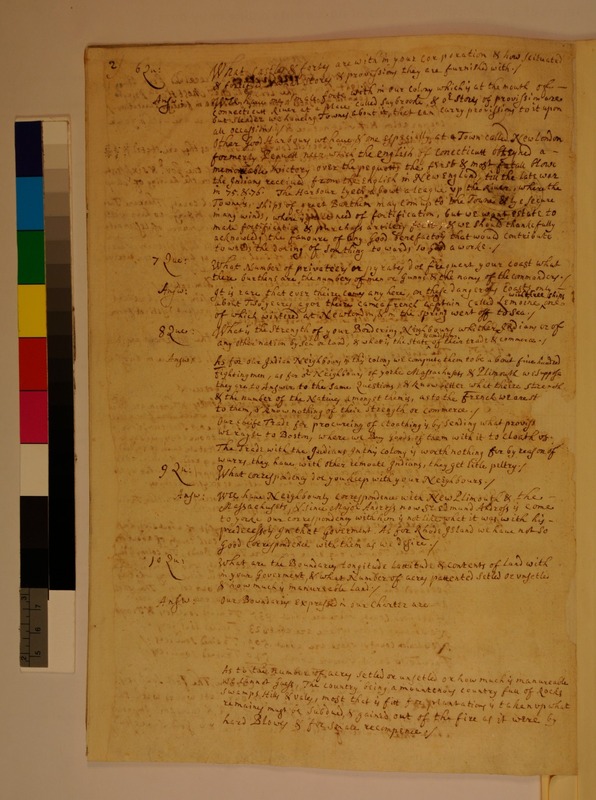 2
6 Qu: What Castles & fortes are within your Corporation & how scituated
& stores & provisions they are furnished with:/
Answ: fort with in our colony which is at the mouth of
Connecticut River at a place called Saybrooke, & or stores of provision are
but slender we having Townes about it, that can carry provissions to it upon
all occassions
Other Good Harbours we have & one especially at a Town called New London
formerly Pequott neer which the english of Conecticutt obteined a
memorable Victory over the pequotts the first & most fatall Blowe
the Indians received from the english in New England, till the late warr
in 75: & 76: The Harbour lyeth about a league up the River, where the
Towne is, ships of great Burthen may com up to the Towne & lye secure
many winds, of fortification, but we want estate to
make fortification & purchass artillery for it, & we should thankfully
acknowledg the fauoure of any good benefactor that would contribute
towards the doing of somthing towards so good a worke:/
7 Que: What Number of privateers or pyrates doe frequent your coast what
their burthens are the number of men or Gunns & the names of the commanders:/
Answ: It is rare that ever there comes any here, on these dangerous Coasts only
about Two yeares agoe there came a french Captain called Lemoine, with three ships
of which wintered at Newlondon, & in the Spring went off to Sea:/
8 Que: What is the strength of your Bordering Neighbours, whither Indians or of
any other nation by Sea or Land, & what is the State of their trade & commerce:/
Answ: As for our Indian Neighbours in this colony we compute them to be about five hundred
fighting men, as for or Neighbours of yorke Massachusets & Plimouth we suppose
they are to Answer to the Same Questions & know better what their strength
& the number of the Natives amongst them is, as to the French we are st
to them, & know nothing of their strength or commerce:/
Our cheife Trade for procureing of cloathing is by Sending what provissi
we rayse to Boston, where we Buy goods of them with it to cloath us.
The Trade with the Indians in this colony is worth nothing for by reason of
warrs they have with other remoate Indians, they get little peltry:/
9 Qu. What correspondency doe you keep with your Neighbours:/
Answ: Wee have Neighbourly Correspondence with New Plimouth & the
Massachusets, & since Major Andross now Sr Edmund Andross is come
to yorke our correspondency with him is not like what it was with his
predecessors in that Goverment. As for Rhode Island we have not so
Good Correspondence with them as we desire:/
10 Qu: What are the Boundaries Longitude Lattitude & contents of land with
in your Goverment, & what Number of acres pattented setled or unsetled
& how much is manureable land:/
Answ: Our Boundaries expressed in our charter are
As to the Number of acres setled or unsetled or how much is manureable
we cannot guess, The country being a mountenous country full of Rocks
Swamps, Hills & vales, most that is fit for plantations is taken up what
remaines must be Subdued, & gained out of the fire as it were by
hard Blowes & for Smale recompence:/